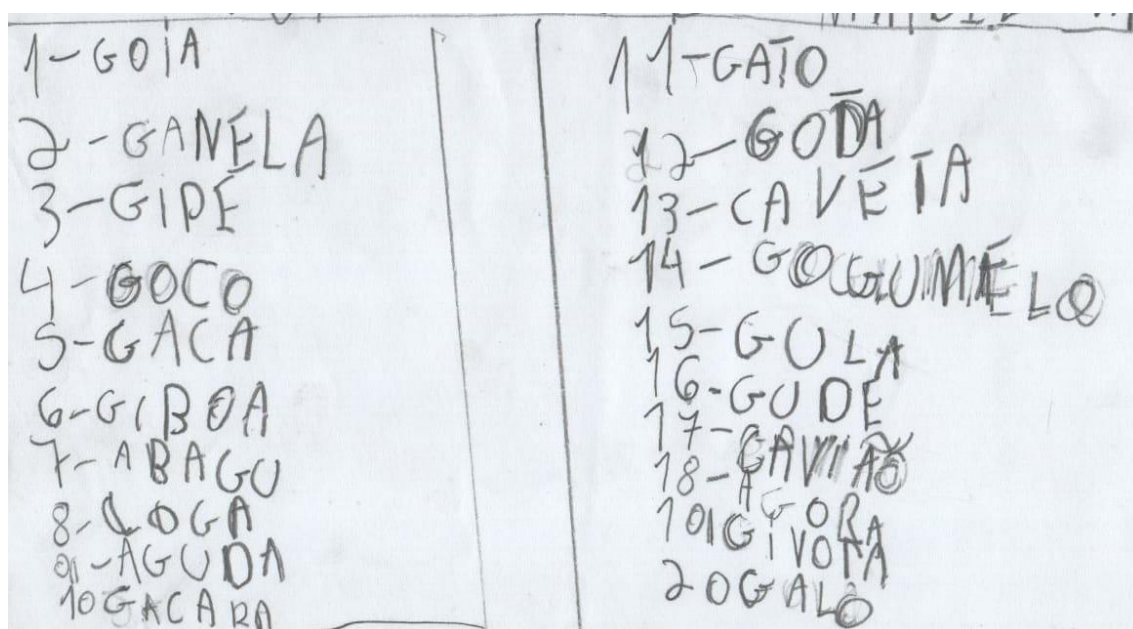 1-GOIA
2-GANELA
3-GIPE
4-GOCO
5-GACA
6-GIBOA
7-ABAGU
8-LOGA
9-AGUDA
10 GACARA
11-GATO
12-GODA
13-CAVETA
14-GOGUMELO
15-GULA
16-GUDE
17-GAVIÃO
18-AGORA
19 GIVOTA
20 GALO